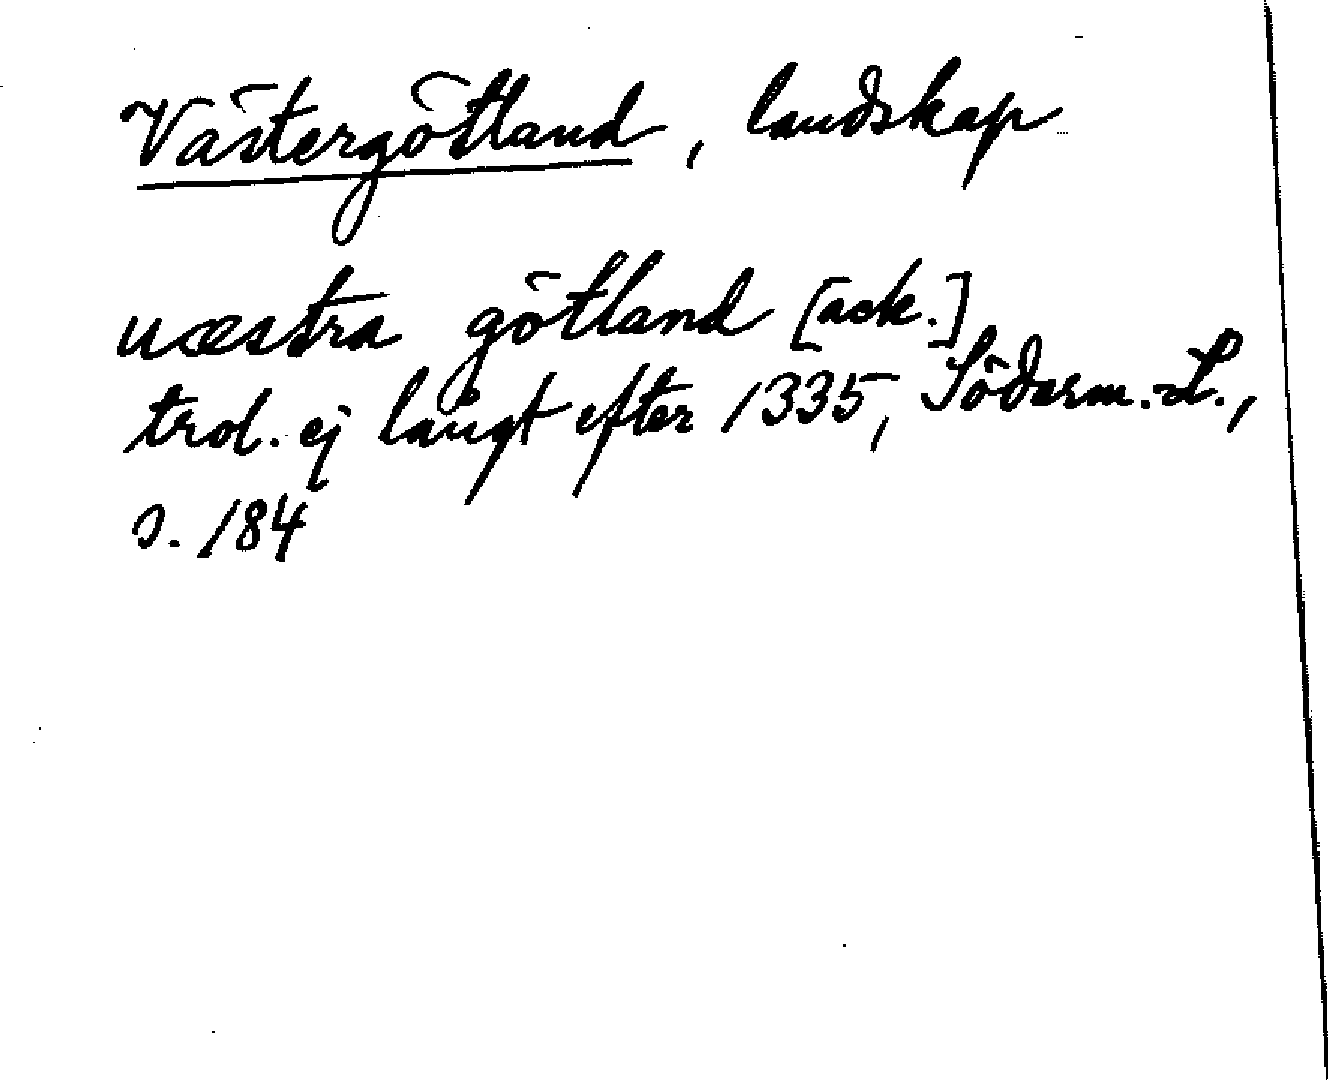 Västergötland, landskap
uæstra götland [ack.]
trol. ej långt efter 1335, Söderm.-L.,
s. 184